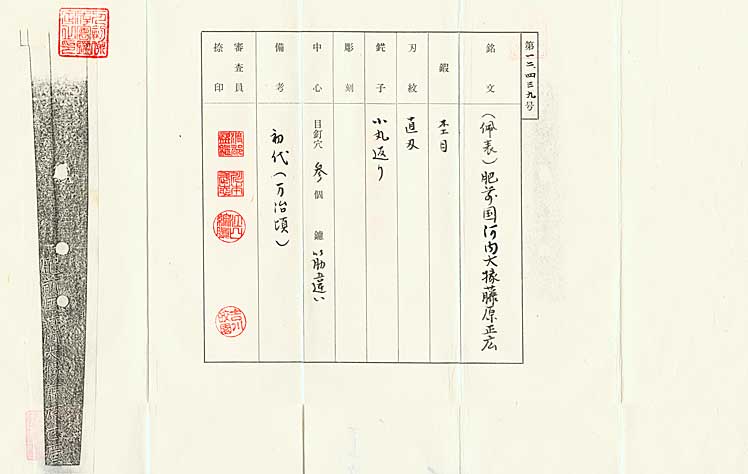 第一二、四三九号
銘文 (佩表)肥前国河内大掾藤原正広
鍜 杢目
刃紋 直刃
鋩子 小丸返り
彫刻
中心 目釘穴 参個 鑢 筋違い
備考 初代(万治頃)
審査員捺印